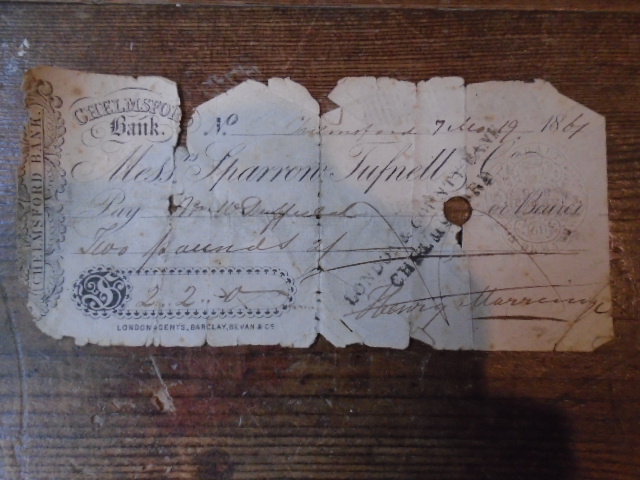 CHELMSFORD BANK.
CHELMSFORD
Bank.
No Chelmsford 7 Mo 19 1861
Messrs Sparrow Tufnell & Co
Pay Wm W Duffield or Bearer
Two pounds 2/-
£ 2 . 2 . 0
Henry
LONDON AGENTS, BARCLAY, BEVAN & Co
LONDON & COUNTY BANK
CHELMSFORD